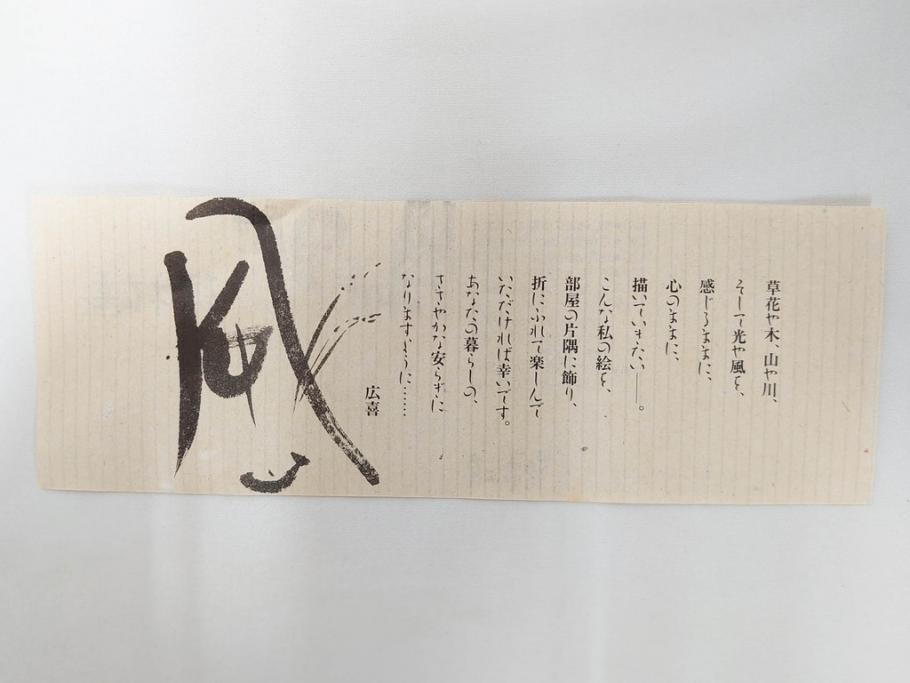 草花や木、山や川、
そして光や風を、
感じるままに、
心のままに、
描いていきたい――。
こんな私の絵を、
部屋の片隅に飾り、
折にふれて楽しんで
いただければ幸いです。
あなたの暮らしの、
ささやかな安らぎに
なりますように……
広喜
風